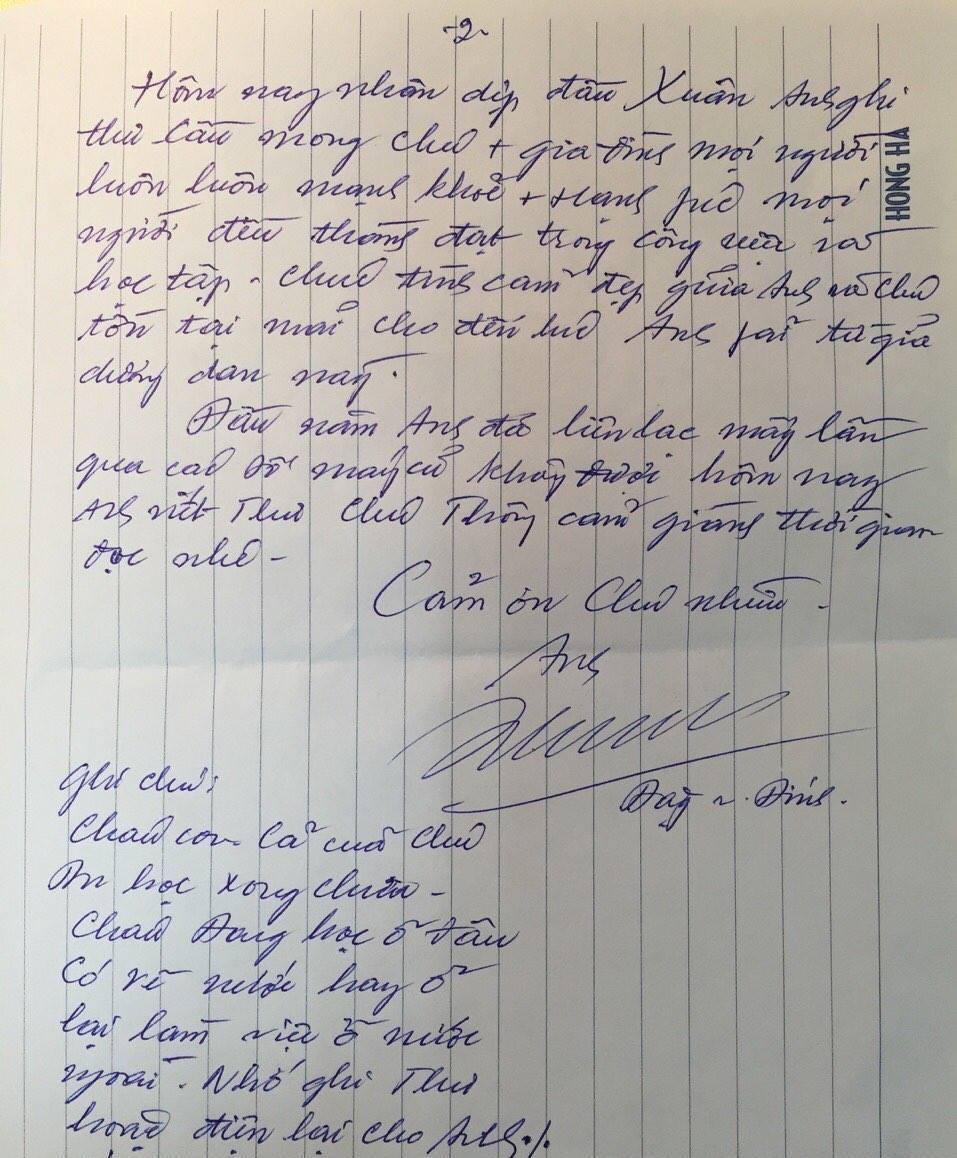 -2-
Hôm nay nhân dịp đầu Xuân Anh ghi
thư cầu mong chú + gia đình mọi người
HONG HA
luôn luôn mạnh khoẻ + Hạnh fúc mọi
người đều thành đạt trong công việc và
học tập - chúc tình cảm đẹp giữa Anh và Chú
tồn tại mãi cho đến lúc Anh fải từ giã
dương gian này.
Đầu năm Anh đã liên lạc mấy lần
qua số máy cũ không được hôm nay
Anh viết Thư Chú Thông cảm giành thời gian
đọc nhé -
Cảm ơn Chú nhiều -
Anh
Ghi chú:
Cháu con cả của Chú
học xong chưa -
Cháu học ở đâu
Có về nước hay ở
lại làm việc ở nước
ngoài. Nhớ ghi Thư
hoặc điện lại cho Anh ./.